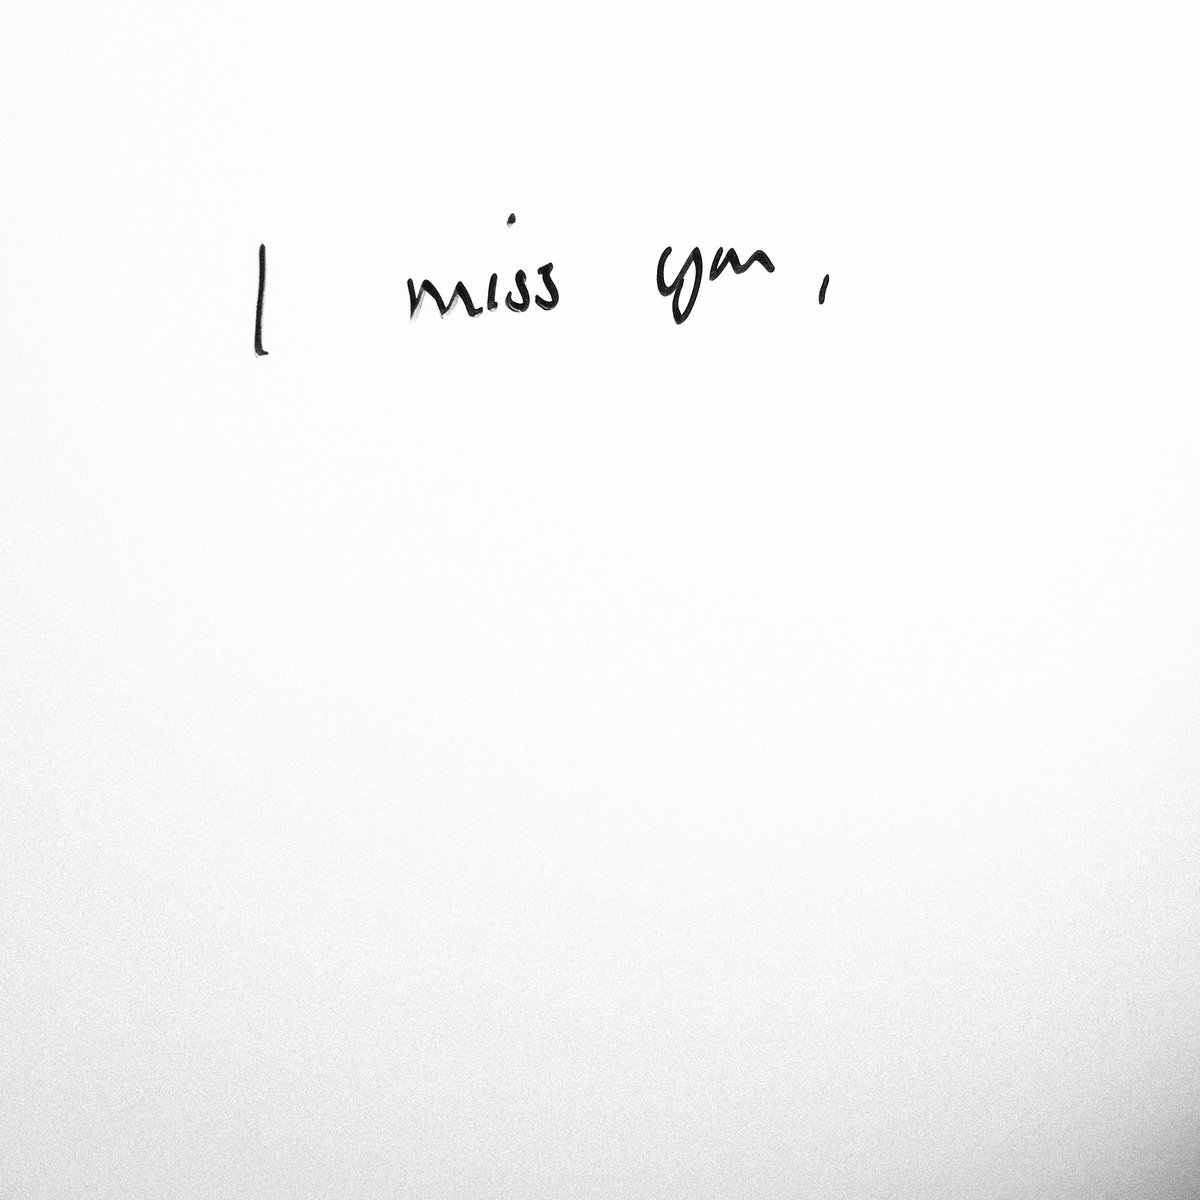 I miss you,